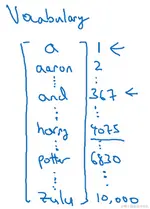 Vocabulary
a 1 ←
aaron 2
⋮ ⋮
and 367 ←
⋮ ⋮
harry 4075
⋮ ⋮
potter 6830
⋮ ⋮
zulu 10,000